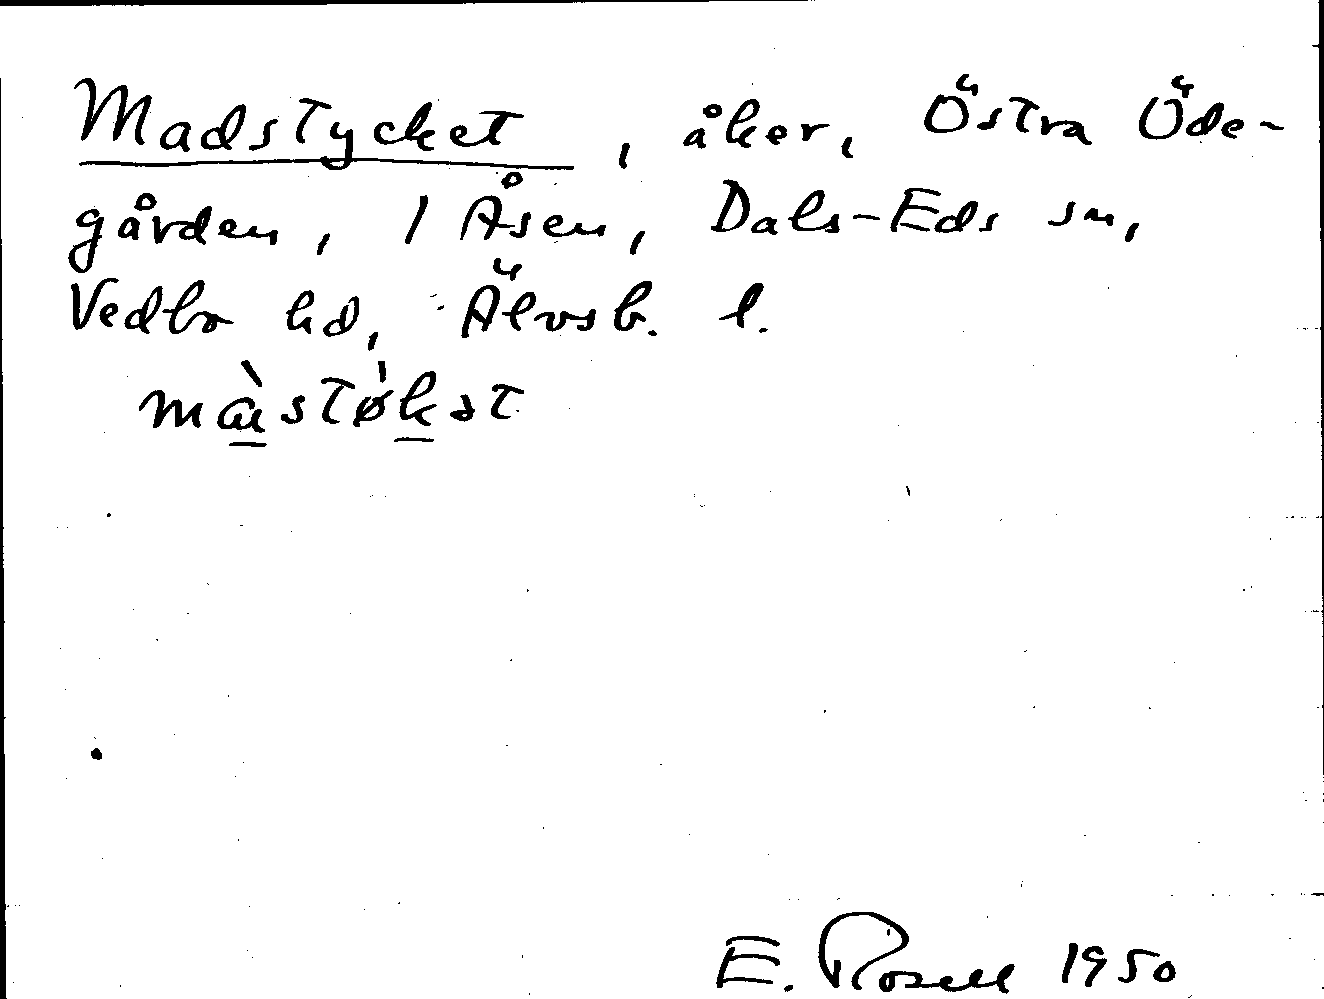 Madstycket, åker, Östra Öde-
gården, 1 Åsen, Dals-Eds sn,
Vedbo hd, Älvsb. l.
mὰstø̀kət
E. Rosell 1950